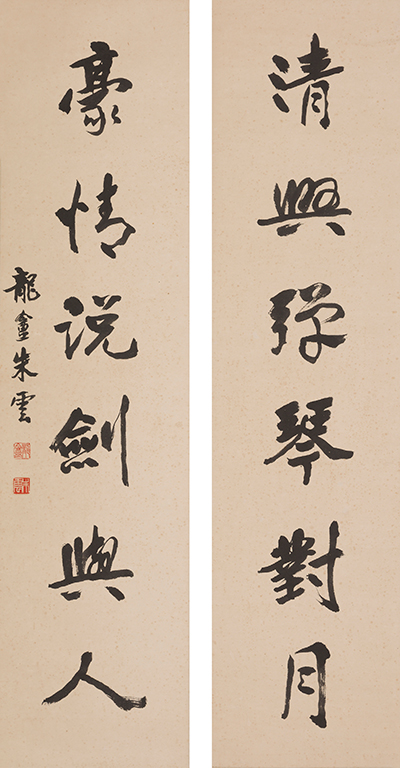 清興彈琴對月
豪情説劍與人
龍盦朱雲